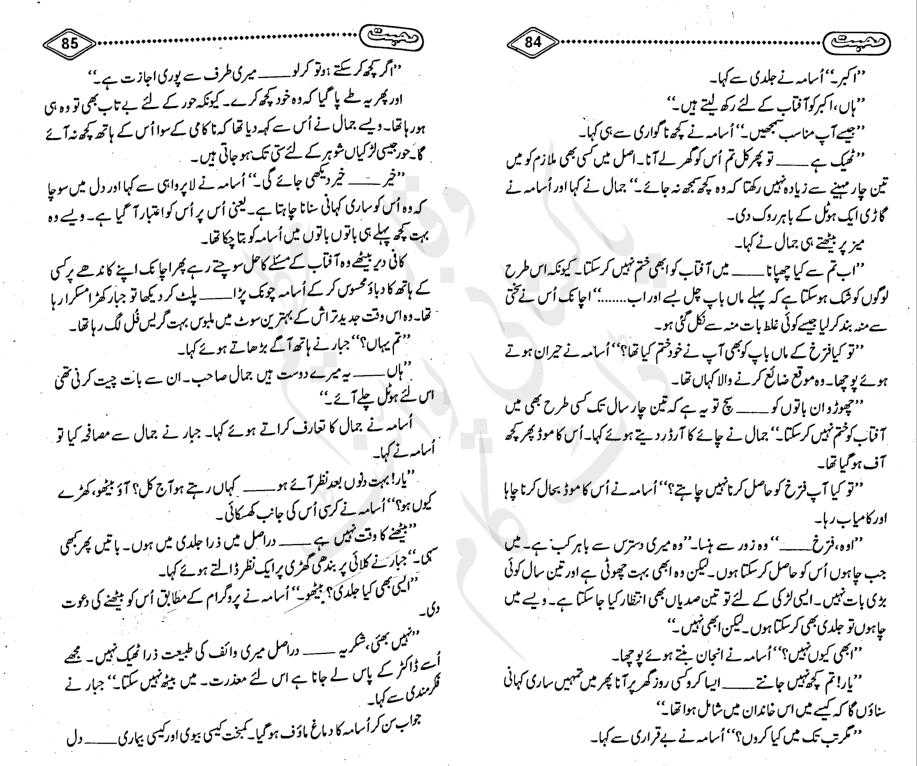 محبت 84
’’اکبر۔‘‘ اُسامہ نے جلدی سے کہا۔
’’ہاں، اکبر کو آفتاب کے لئے رکھ لیتے ہیں۔‘‘
’’جیسے آپ مناسب سمجھیں۔‘‘ اُسامہ نے کچھ ناگواری سے ہی کہا۔
’’ٹھیک ہے ____ تو پھر کل تم اُس کو گھر لے آنا۔ اصل میں کسی بھی ملازم کو میں
تین چار مہینے سے زیادہ نہیں رکھتا کہ وہ کچھ سمجھ نہ جائے۔‘‘ جمال نے کہا اور اُسامہ نے
گاڑی ایک ہوٹل کے باہر روک دی۔
میز پر بیٹھتے ہی جمال نے کہا۔
’’اب تم سے کیا چھپانا ____ میں آفتاب کو ابھی ختم نہیں کر سکتا۔ کیونکہ اس طرح
لوگوں کو شک ہو سکتا ہے کہ پہلے ماں باپ چل بسے اور اب........‘‘ اچانک اُس نے سختی
سے منہ بند کر لیا جیسے کوئی غلط بات منہ سے نکل گئی ہو۔
’’تو کیا فرخ کے ماں باپ کو بھی آپ نے خود ختم کیا تھا؟‘‘ اُسامہ نے حیران ہوتے
ہوئے پوچھا۔ وہ موقع ضائع کرنے والا کہاں تھا۔
’’چھوڑو ان باتوں کو ____ سچ تو یہ ہے کہ تین چار سال تک کسی طرح بھی میں
آفتاب کو ختم نہیں کر سکتا۔‘‘ جمال نے چائے کا آرڈر دیتے ہوئے کہا۔ اُس کا موڈ پھر کچھ
آف ہو گیا تھا۔
’’تو کیا آپ فرخ کو حاصل کرنا نہیں چاہتے؟‘‘ اُسامہ نے اُس کا موڈ بحال کرنا چاہا
اور کامیاب رہا۔
’’اوہ، فرخ ____‘‘ وہ زور سے ہنسا۔ ’’وہ میری دسترس سے باہر کب ہے۔ میں
جب چاہوں اُس کو حاصل کر سکتا ہوں۔ لیکن وہ ابھی بہت چھوٹی ہے اور تین سال کوئی
بڑی بات نہیں۔ ایسی لڑکی کے لئے تو تین صدیاں بھی انتظار کیا جا سکتا ہے۔ ویسے میں
چاہوں تو جلدی بھی کر سکتا ہوں۔ لیکن ابھی نہیں۔‘‘
’’ابھی کیوں نہیں؟‘‘ اُسامہ نے انجان بنتے ہوئے پوچھا۔
’’یار! تم کچھ نہیں جانتے ____ ایسا کرو کسی روز گھر پر آنا پھر میں تمہیں ساری کہانی
سناؤں گا کہ کیسے میں اس خاندان میں شامل ہوا تھا۔‘‘
’’مگر تب تک میں کیا کروں؟‘‘ اُسامہ نے بے قراری سے کہا۔
محبت 85
’’اگر کچھ کر سکتے ہو تو کر لو ____ میری طرف سے پوری اجازت ہے۔‘‘
اور پھر یہ طے پا گیا کہ وہ خود کچھ کرے۔ کیونکہ حور کے لئے بے تاب بھی تو وہ ہی
ہو رہا تھا۔ ویسے جمال نے اُس سے کہہ دیا تھا کہ ناکامی کے سوا اُس کے ہاتھ کچھ نہ آئے
گا۔ حور جیسی لڑکیاں شوہر کے لئے ستی تک ہو جاتی ہیں۔
’’خیر ____ خیر دیکھی جائے گی۔‘‘ اُسامہ نے لاپرواہی سے کہا اور دل میں سوچا
کہ وہ اُس کو ساری کہانی سنانا چاہتا ہے۔ یعنی اُس پر اُس کو اعتبار آ گیا ہے۔ ویسے وہ
بہت کچھ پہلے ہی باتوں باتوں میں اُسامہ کو بتا چکا تھا۔
کافی دیر بیٹھے وہ آفتاب کے مسئلے کا حل سوچتے رہے پھر اچانک اپنے کاندھے پر کسی
کے ہاتھ کا دباؤ محسوس کر کے اُسامہ چونک پڑا ____ پلٹ کر دیکھا تو جبار کھڑا مسکرا رہا
تھا۔ وہ اس وقت جدید تراش کے بہترین سوٹ میں ملبوس بہت گریس فُل لگ رہا تھا۔
’’تم یہاں؟‘‘ جبار نے ہاتھ آگے بڑھاتے ہوئے کہا۔
’’ہاں ____ یہ میرے دوست ہیں جمال صاحب۔ ان سے بات چیت کرنی تھی
اس لئے ہوٹل چلے آئے۔‘‘
اُسامہ نے جمال کا تعارف کراتے ہوئے کہا۔ جبار نے جمال سے مصافحہ کیا تو
اُسامہ نے کہا۔
’’یار! بہت دنوں بعد نظر آئے ہو ____ کہاں رہتے ہو آج کل؟ آؤ بیٹھو، کھڑے
کیوں ہو؟‘‘ اُسامہ نے کرسی اُس کی جانب کھسکائی۔
’’بیٹھنے کا وقت نہیں ہے ____ دراصل میں ذرا جلدی میں ہوں۔ باتیں پھر کبھی
سہی۔‘‘ جبار نے کلائی پر بندھی گھڑی پر ایک نظر ڈالتے ہوئے کہا۔
’’ایسی بھی کیا جلدی؟ بیٹھو۔‘‘ اُسامہ نے پروگرام کے مطابق اُس کو بیٹھنے کی دعوت
دی۔
’’نہیں بھئی، شکریہ ____ دراصل میری وائف کی طبیعت ذرا ٹھیک نہیں۔ مجھے
اُسے ڈاکٹر کے پاس لے جانا ہے اس لئے معذرت۔ میں بیٹھ نہیں سکتا۔‘‘ جبار نے
فکرمندی سے کہا۔
جواب سن کر اُسامہ کا دماغ ماؤف ہو گیا۔ کمبخت کیسی بیوی اور کیسی بیماری ____ دل